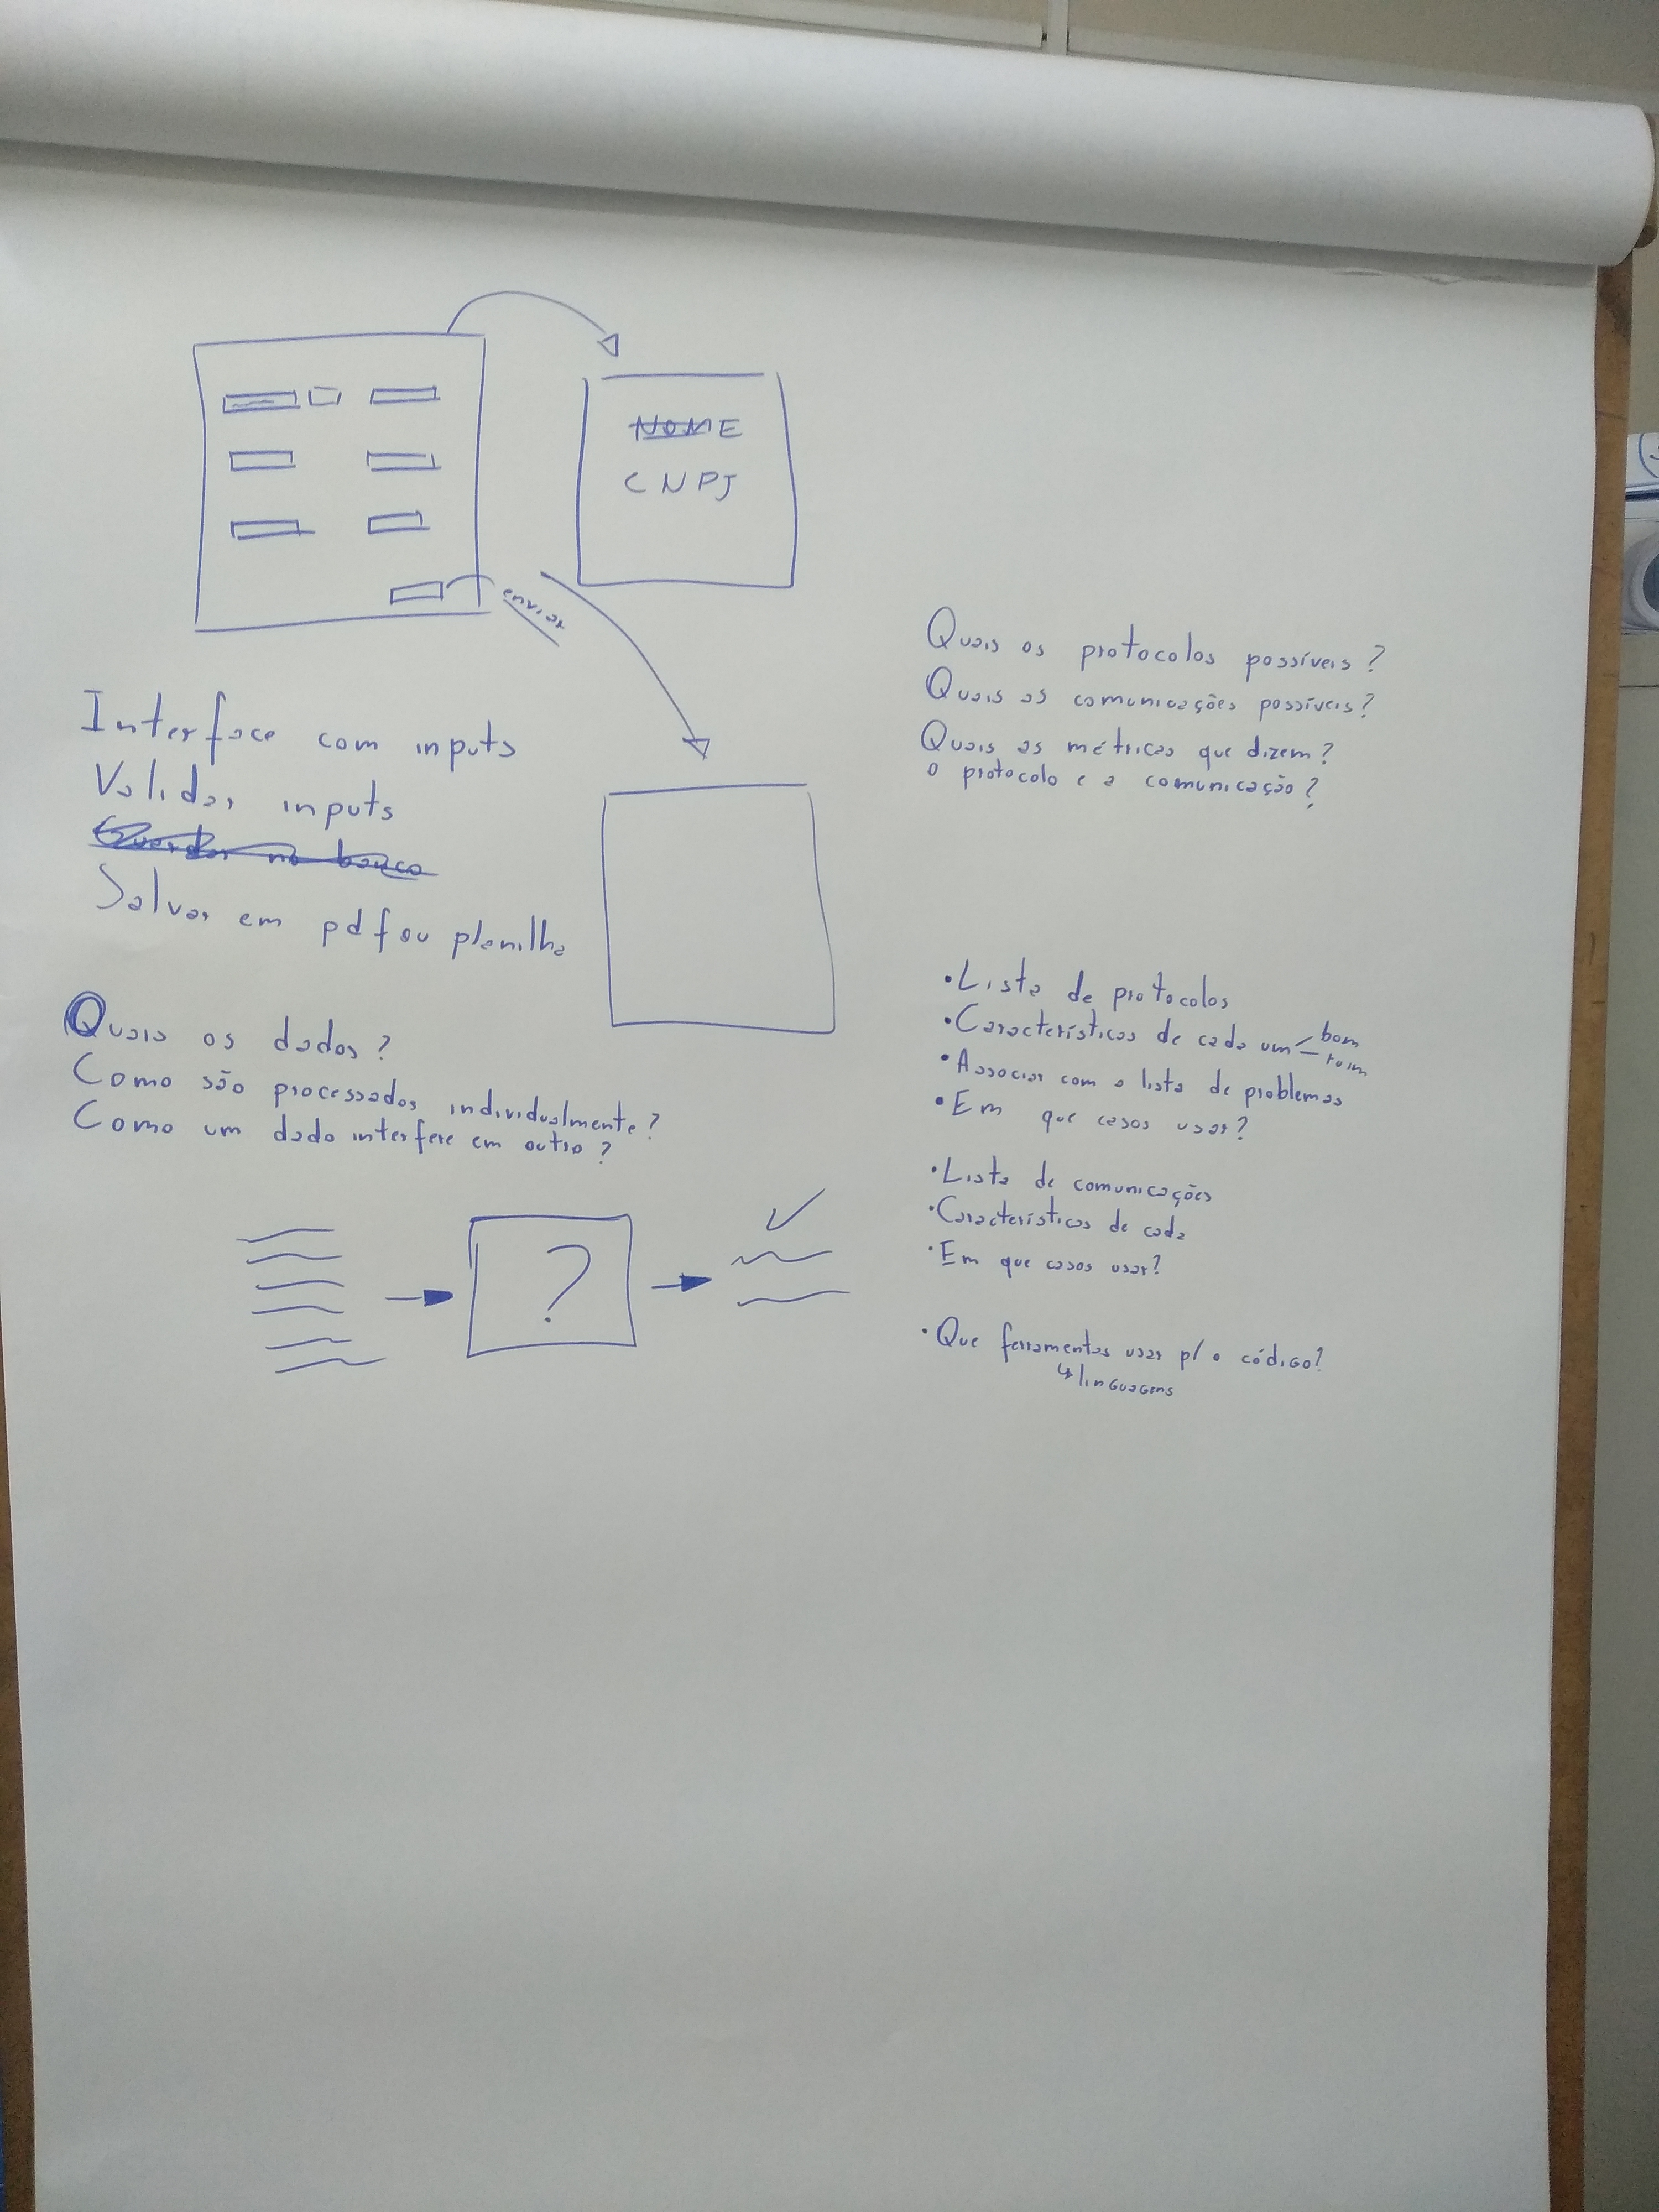 NOME
CNPJ
enviar
Interface com inputs
Validar inputs
Guardar no banco
Salvar em pdf ou planilha
Quais os dados?
Como são processados individualmente?
Como um dado interfere em outro?
?
Quais os protocolos possíveis?
Quais as comunicações possíveis?
Quais as métricas que dizem?
o protocolo e a comunicação?
•Lista de protocolos
•Características de cada um
bom
ruim
•Associar com a lista de problemas
•Em que casos usar?
•Lista de comunicações
•Características de cada
•Em que casos usar?
•Que ferramentas usar p/ o código?
↳linguagens